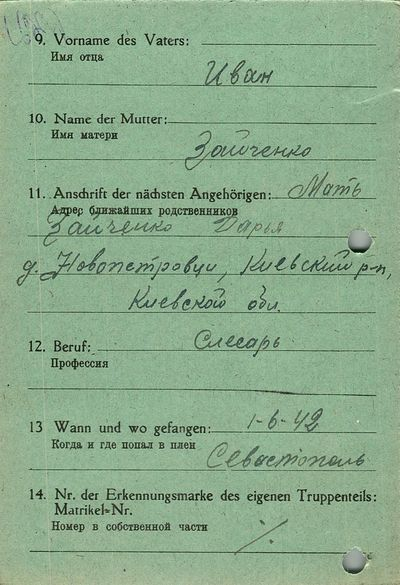 9. Vorname des Vaters:
Имя отца
Иван
10. Name der Mutter:
Имя матери
Зайченко
11. Anschrift der nächsten Angehörigen: Мать
Адрес ближайших родственников
Зайченко Дарья
д. Новопетровци, Киевский р-н,
Киевской обл.
12. Beruf: Слесарь
Профессия
13 Wann und wo gefangen: 1-6-42
Когда и где попал в плен
Севастополь
14. Nr. der Erkennungsmarke des eigenen Truppenteils:
Matrikel-Nr.
Номер в собственной части